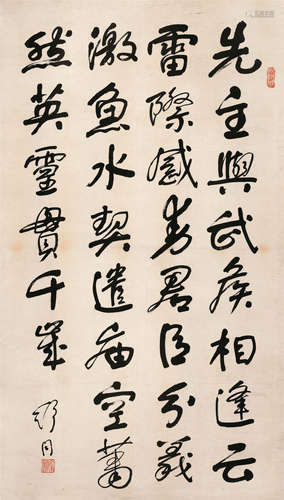 先主與武侯相逢云
雷際感君臣分義
激魚水契遺廟空蕭
然英靈貫千歲
舒同